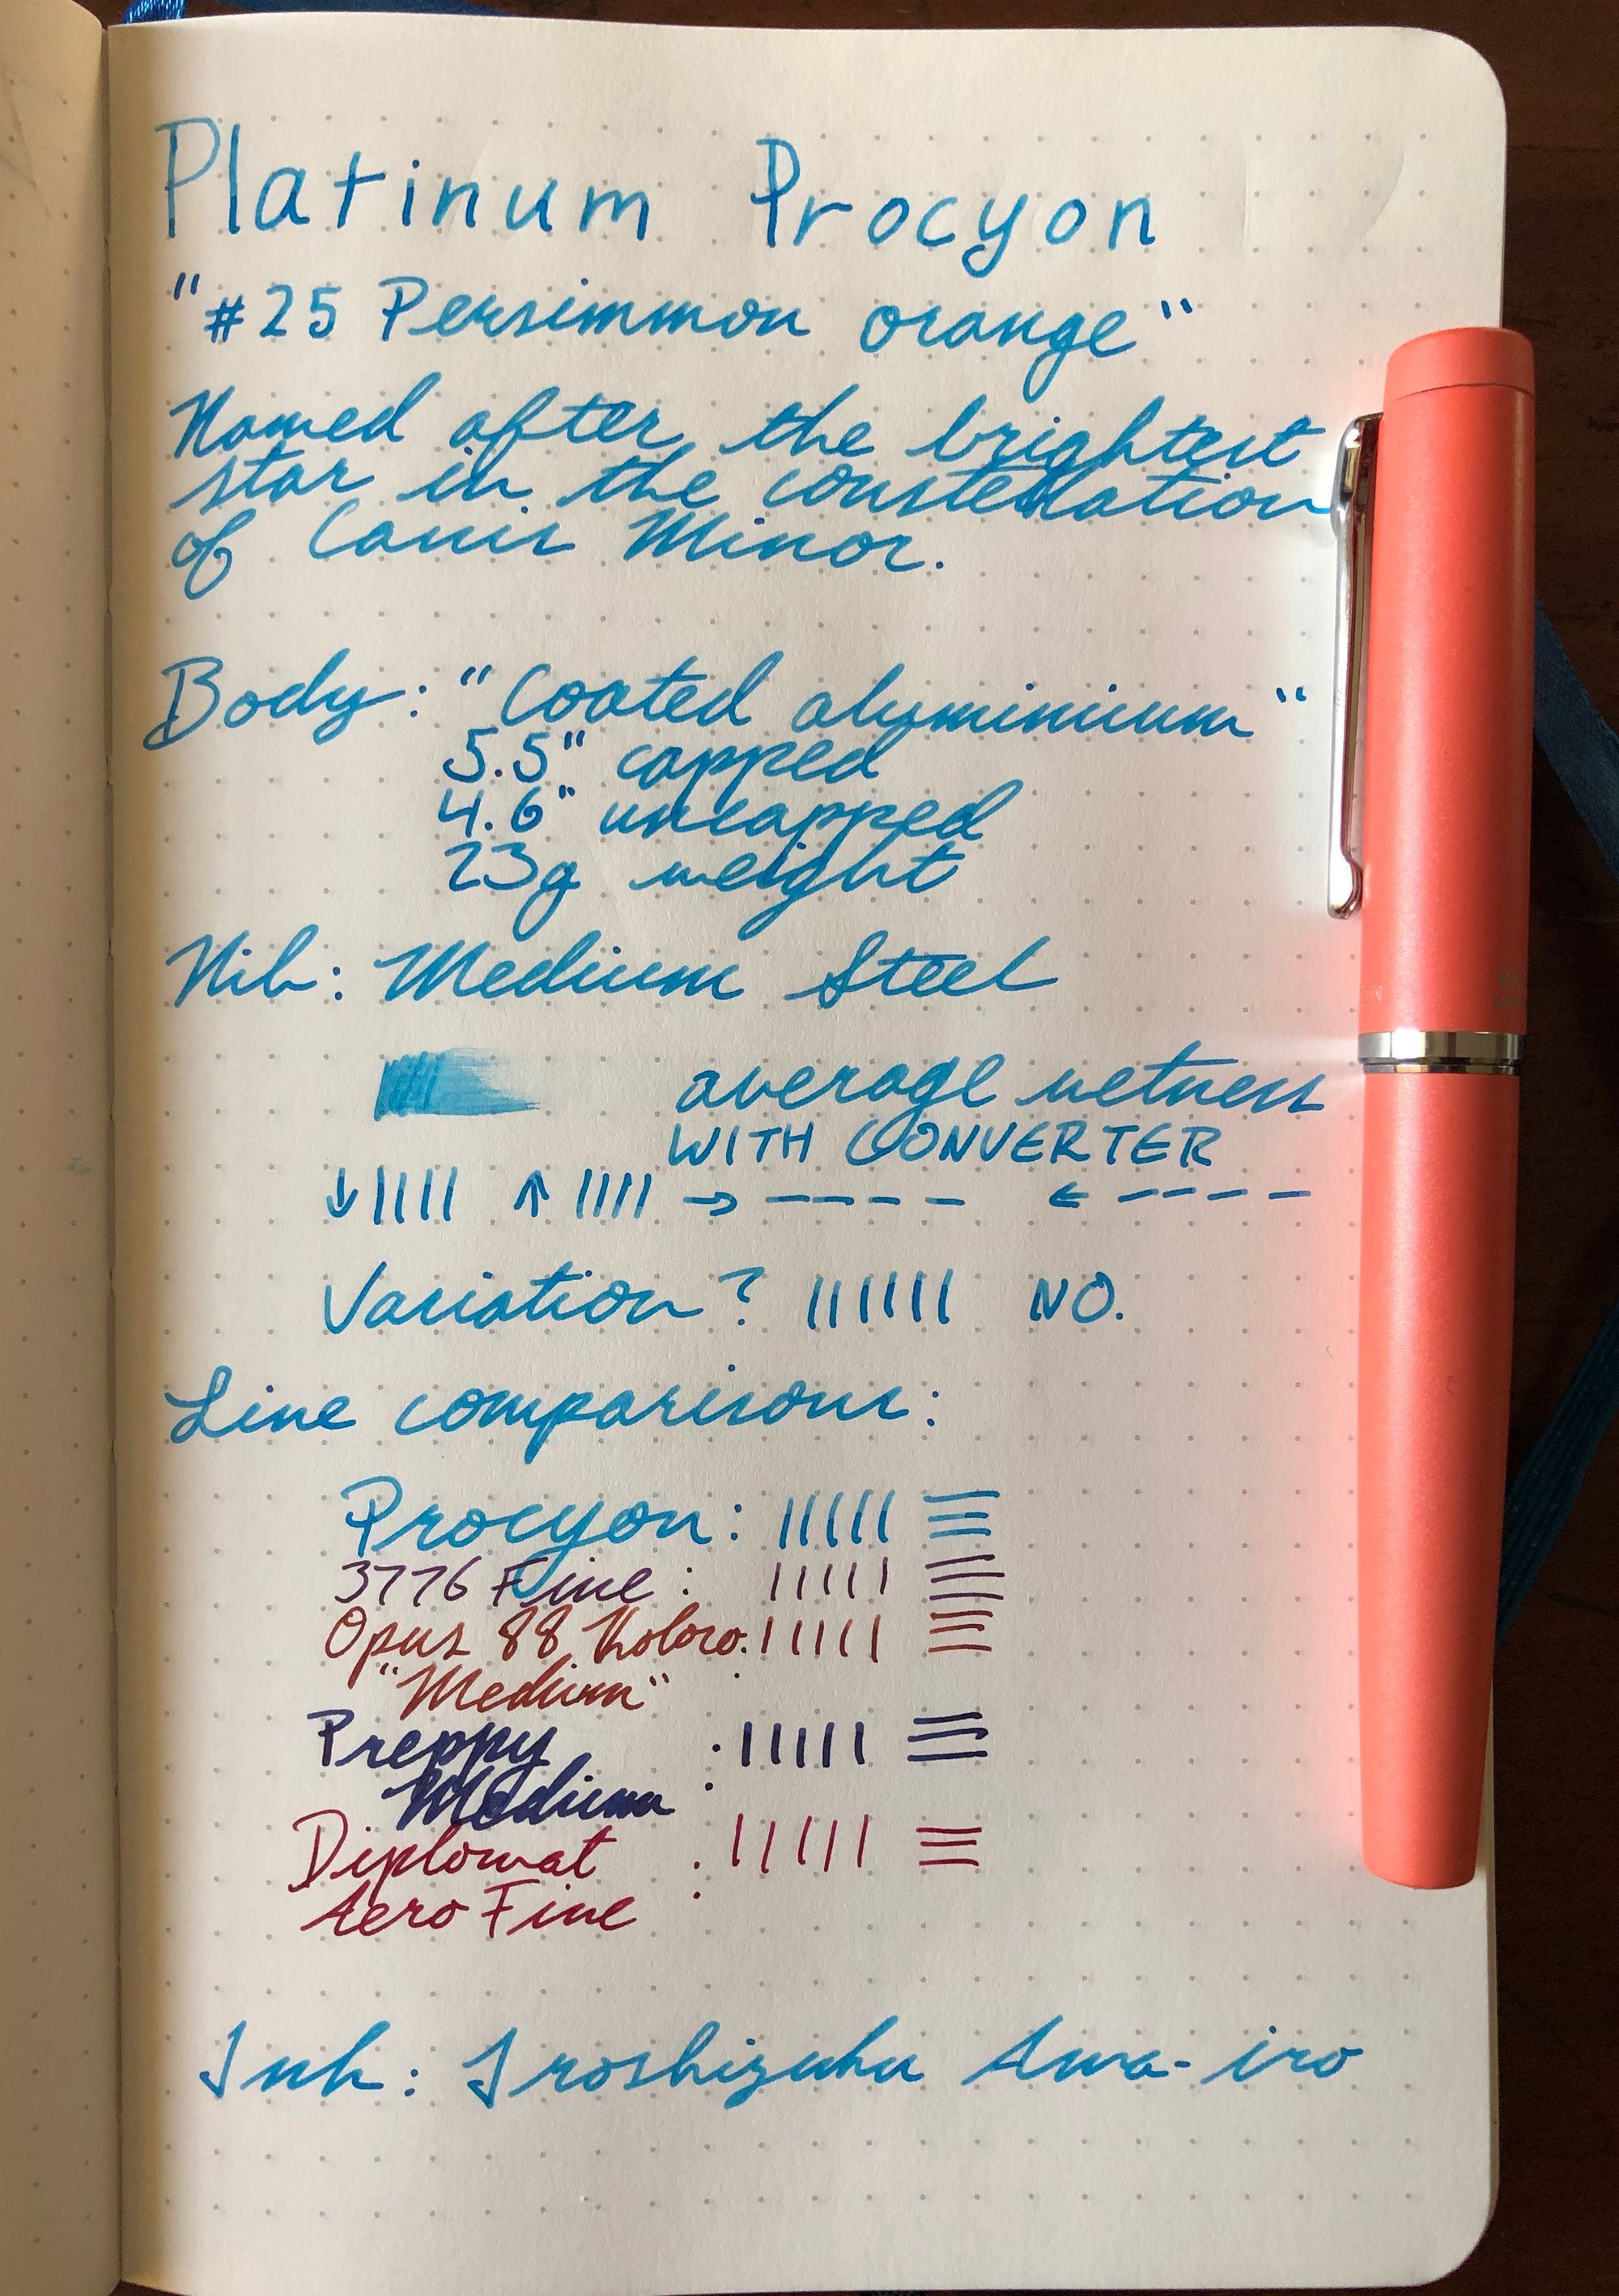 Platinum Procyon
"#25 Persimmon orange"
Named after the brightest
star in the constellation
of Canis Minor.
Body: "Coated aluminium"
5.5" capped
4.6" uncapped
23g weight
Nib: Medium Steel
average wetness
WITH CONVERTER
↓ ↑ → ←
Variation? NO.
Line comparisons:
Procyon:
3776 Fine:
Opus 88 Koloro:
"Medium"
Preppy :
Medium
Diplomat :
Aero Fine
Ink: Iroshizuku Ama-iro